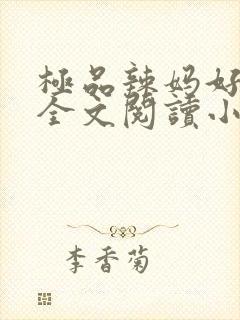 極品辣妈好
全文閱讀小
李香菊